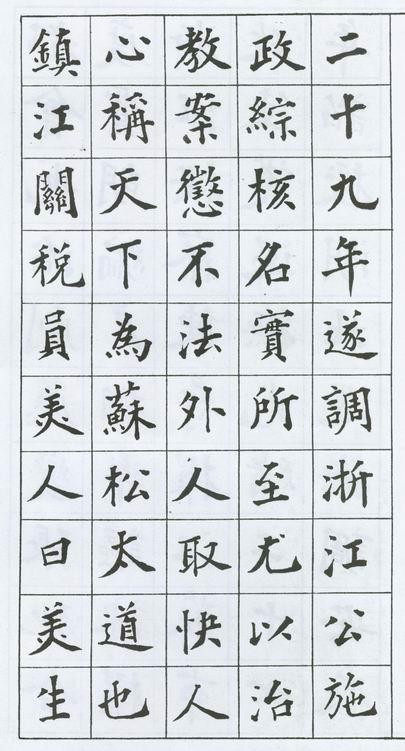 二十九年遂調浙江公施
政綜核名實所至尤以治
教案懲不法外人取快人
心稱天下為蘇松太道也
鎮江關税員美人曰美生